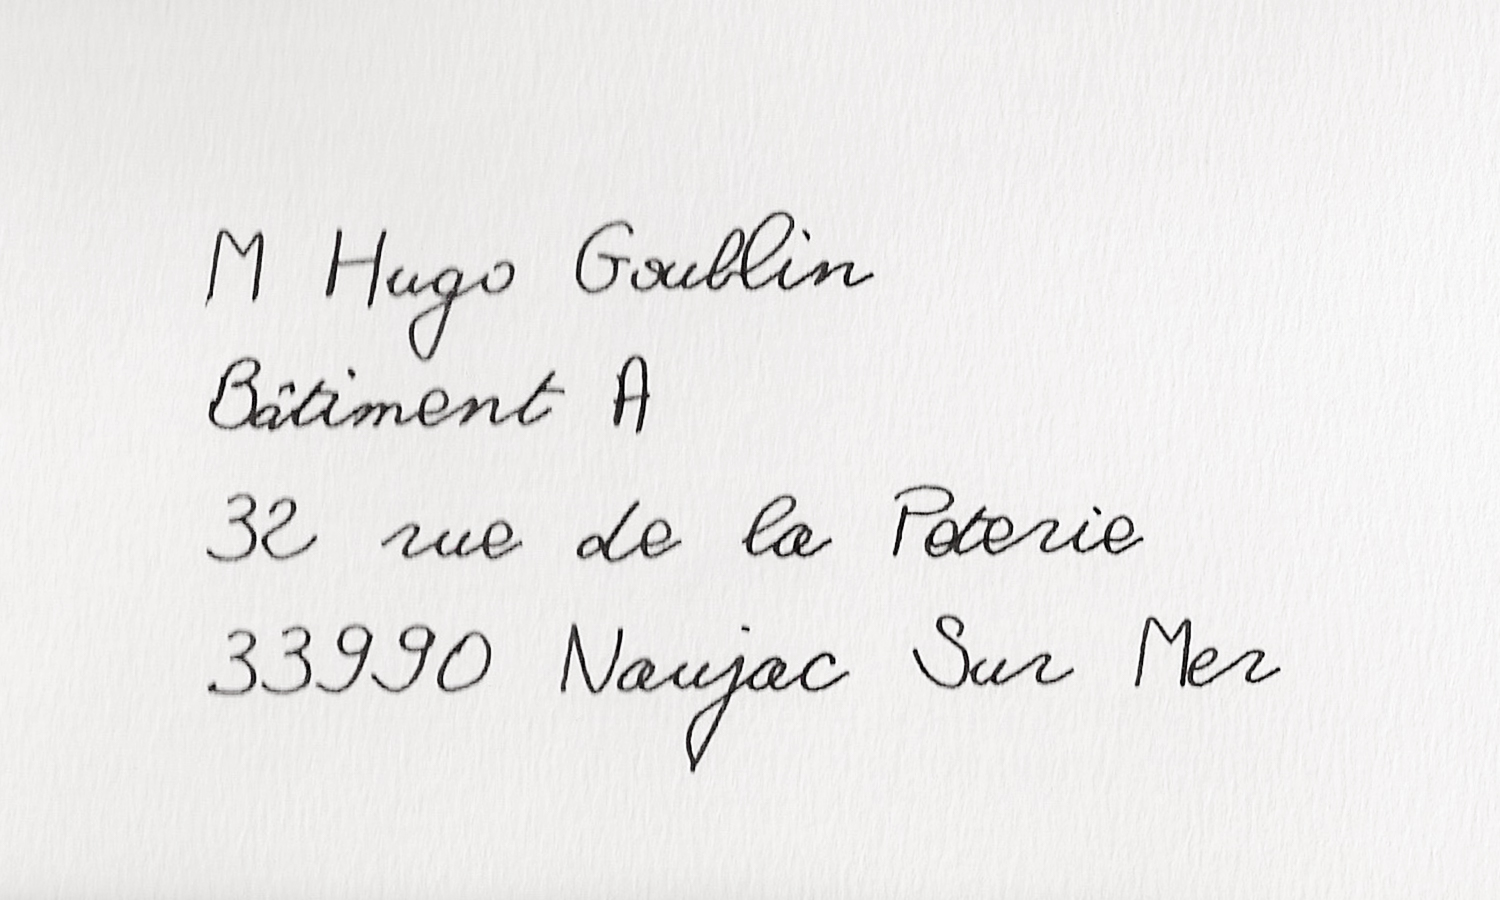 M Hugo Goublin
Bâtiment A
32 rue de la Poterie
33990 Naujac Sur Mer